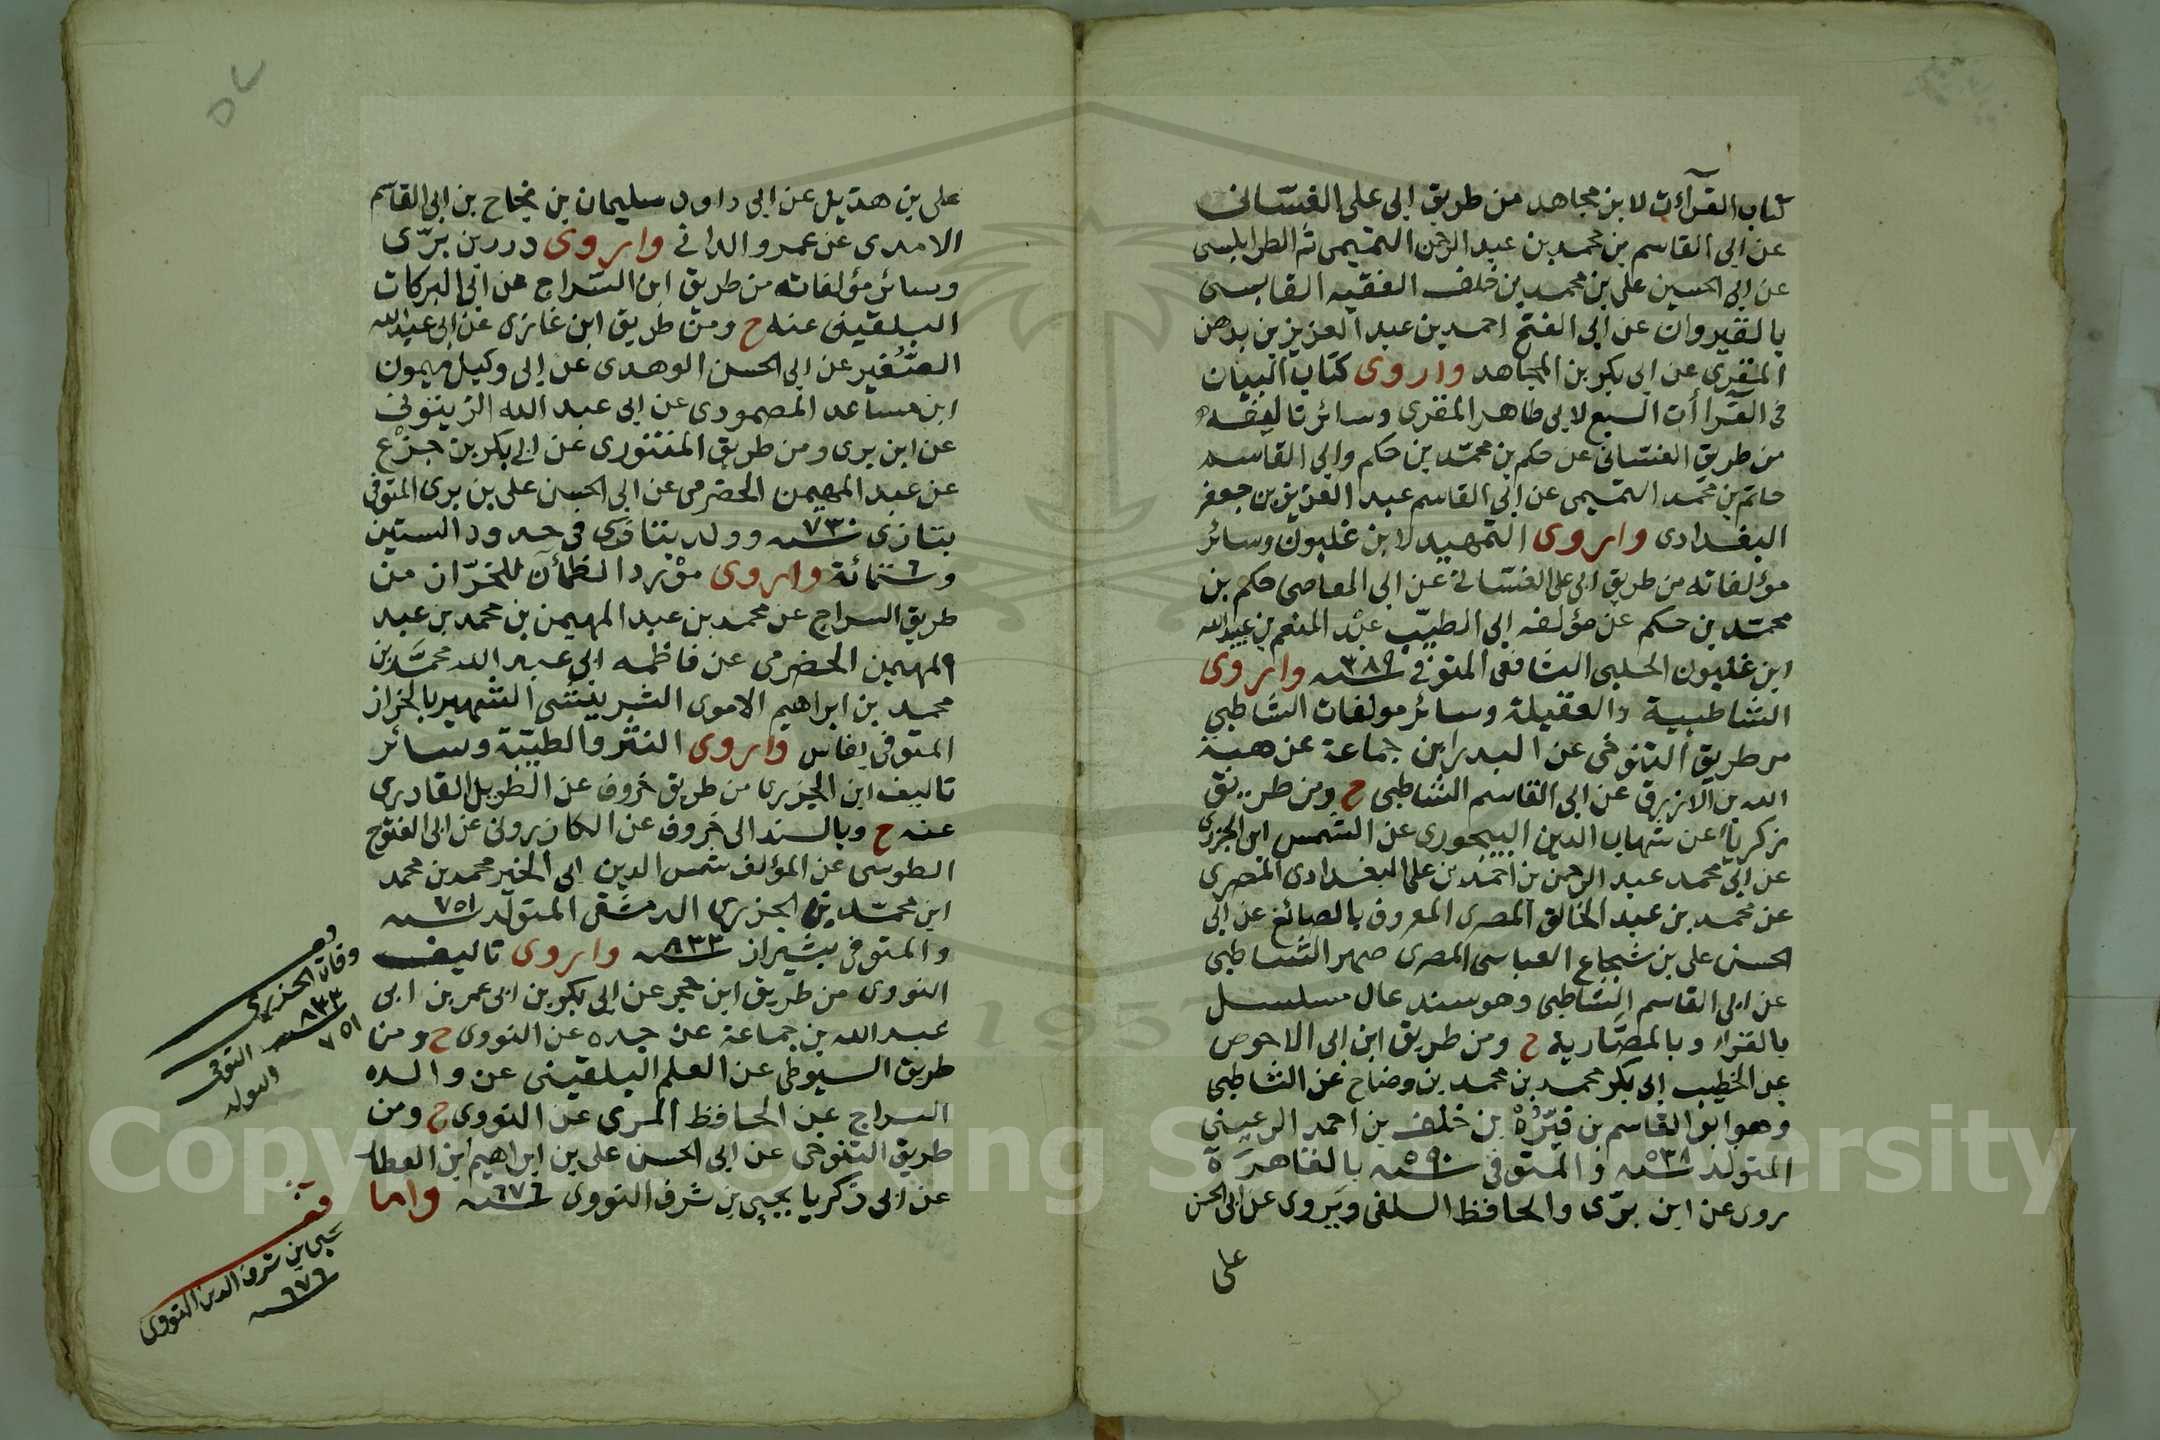 كتاب القرآءت لابن مجاهد من طريق ابى على الغسانى
عن ابى القاسم بن محمد بن عبد الرحمن التميمى ثم الطرابلسى
عن ابى الحسين على بن محمد بن خلف الفقيه القابسى
بالقيروان عن ابى الفتح احمد بن عبد العزيز بن بدهن
المقرى عن ابى بكر بن المجاهد واروى كتاب البيان
فى القرا أت السبع لابى طاهر المقرى وسائر تاليفه
من طريق الغسانى عن حكم بن محمد بن حكم وابى القاسم
حاتم بن محمد التميمى عن ابى القاسم عبد العزيز بن جعفر
البغدادى واروى التمهيد لابن غلبون وسائر
مؤلفاته من طريق ابى على الغسانى عن ابى العاصى حكم بن
محمد بن حكم عن مؤلفه ابى الطيب عبد المنعم بن عبيد الله
ابن غلبون الحلبى الشافعى المتوفى سنه ٣٨٩ واروى
الشاطبية والعقيلة وسائر مولفات الشاطبى
من طريق التنوخى عن البدر ابن جماعة عن هبة
الله بن الازرق عن ابى القاسم الشاطبى ح ومن طريق
زكرياء عن شهاب الدين البيجورى عن الشمس ابن الجزرى
عن ابى محمد عبد الرحمن بن احمد بن على البغدادى المصرى
عن محمد بن عبد الخالق المصرى المعروف بالصائغ عن ابى
الحسن على بن شجاع العباسى المصرى صهر الشاطبى
عن ابى القاسم الشاطبى وهو سند عال مسلسل
بالقراء وبالمصارية ح ومن طريق ابن ابى الاحوص
عن الخطيب ابى بكر محمد بن محمد بن وضاح عن الشاطبى
وهو ابو القاسم بن فيره بن خلف بن احمد الرعينى
المتولد سنه ٥٣٨ والمتوفى سنه ٥٩٠ بالقاهرة
يروى عن ابن برى والحافظ السلفى ويروى عن ابى الحسن
على
على بن هذيل عن ابى داود سليمان بن نجاح بن ابى القاسم
الامدى عن عمرو الدانى واروى درر بن برى
وسائر مؤلفاته من طريق ابن السراج عن ابى البركات
البلقينى عنه ح ومن طريق ابن غازى عن ابى عبد الله
الصغير عن ابى الحسن الوهدى عن ابى وكيل ميمون
ابن مساعد المصمودى عن ابى عبد الله الزيتونى
عن ابن برى ومن طريق المنتورى عن ابى بكر بن جزع
عن عبد المهيمن الحضرمى عن ابى الحسن على بن برى المتوفى
بتازى سنه ٧٣٠ وولد بتازى فى حدود الستين
وستمائة واروى مورد الظمآن للخزان من
طريق السراج عن محمد بن عبد المهيمن بن محمد بن عبد
المهيمن الحضرمى عن ناظمه ابى عبد الله محمد بن
محمد بن ابراهيم الاموى الشريشى الشهير بالخراز
المتوفى بفاس واروى النشر والطيبة وسائر
تاليف ابن الجزرى من طريق خروف عن الطويل القادرى
عنه ح وبالسند الى خروف عن الكازرونى عن ابى الفتوح
الطوسى عن المؤلف شمس الدين ابى الخير محمد بن محمد
ابن محمد بن الجزرى الدمشقى المتولد سنه ٧٥١
والمتوفى بشيراز سنه ٨٣٣ واروى تاليف
النووى من طريق ابن حجر عن ابى بكر بن ابى عمر بن ابى
عبد الله بن جماعة عن جده عن النووى ح ومن
طريق السيوطى عن العلم البلقينى عن والده
السراج عن الحافظ المزى عن النووى ح ومن
طريق التنوخى عن ابى الحسن على بن ابراهيم ابن العطار
عن ابى زكريا يحيى بن شرف النووى سنه ٦٧٦ واما
وفات الجزرى
سنه ٨٣٣ التوفى
٧٥١ المولد
قف
يحيى بن شرف الدين النووى
سنه ٦٧٦
1957
Copyright © King Saud University